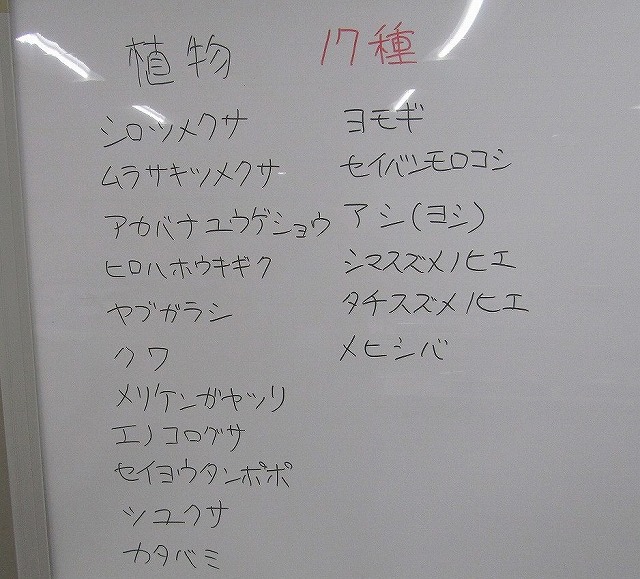 植物 17種
シロツメクサ
ムラサキツメクサ
アカバナユウゲショウ
ヒロハホウキギク
ヤブガラシ
クワ
メリケンガヤツリ
エノコログサ
セイヨウタンポポ
ツユクサ
カタバミ
ヨモギ
セイバンモロコシ
アシ(ヨシ)
シマスズメノヒエ
タチスズメノヒエ
メヒシバ